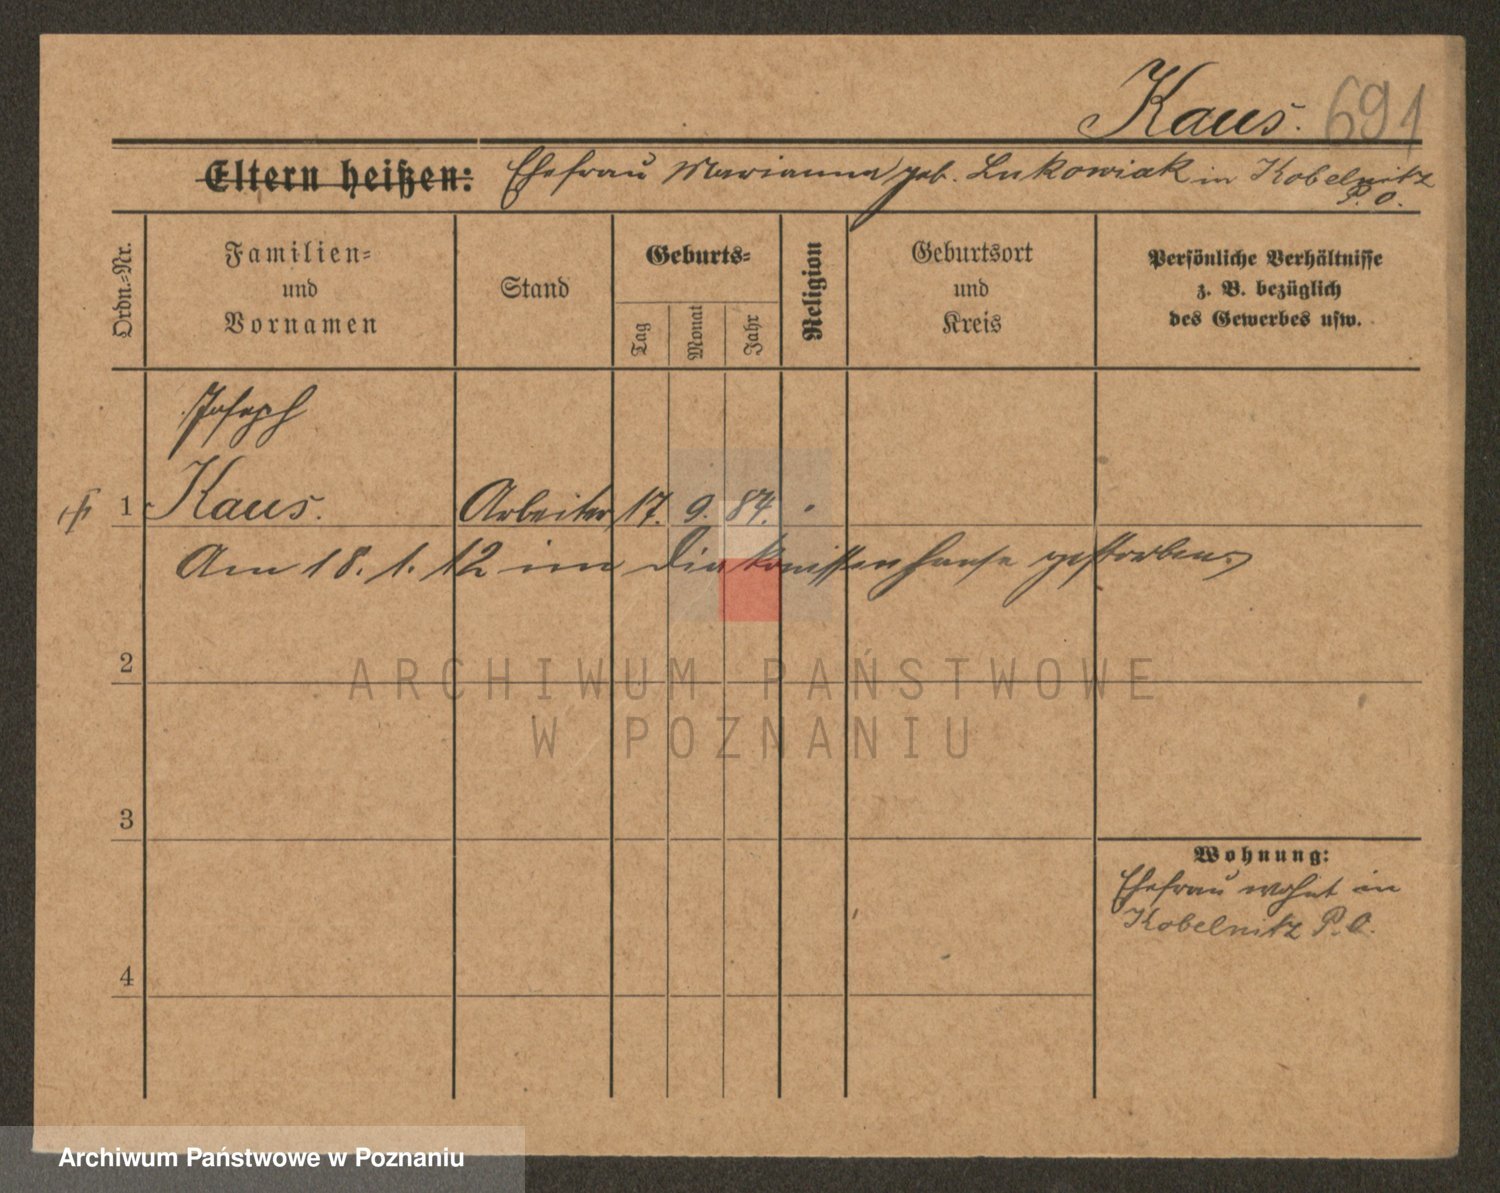 Kaus. 691
Eltern heißen: Ehefrau Marianna geb. Lukowiak in Kobelnitz
P. O.
Ordn.=Nr.
Familien=
und
Vornamen
Stand
Geburts=
Tag
Monat
Jahr
Religion
Geburtsort
und
Kreis
Persönliche Verhältnisse
z. B. bezüglich
des Gewerbes usw.
Joseph
1 Kaus. Arbeiter 17. 9. 84.
Am 18. 1. 12 im Diakonissenhause gestorben.
2
3
4
Wohnung:
Ehefrau wohnt in
Kobelnitz P. O.
ARCHIWUM PAŃSTWOWE
W POZNANIU
Archiwum Państwowe w Poznaniu